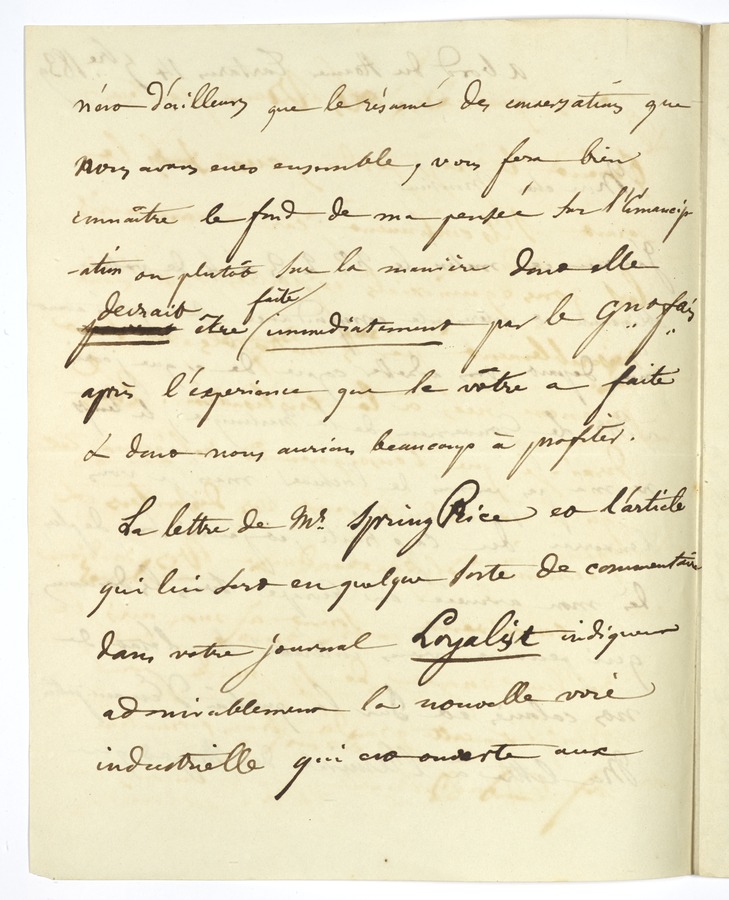 n'est d'ailleurs que le résumé des conversations que
nous avons eues ensemble, vous fera bien
connaître le fond de ma pensée sur l'Emancip
-ation ou plutôt sur la manière dont elle
devrait être faite immediatement par le Gnt fçais
après l'expérience que le vôtre a faite
& dont nous aurions beaucoup à profiter.
La lettre de Mr. Spring Rice et l'article
qui lui sert en quelque sorte de commentaire
dans votre journal Loyalist indiquent
admirablement la nouvelle voie
industrielle qui est ouverte aux